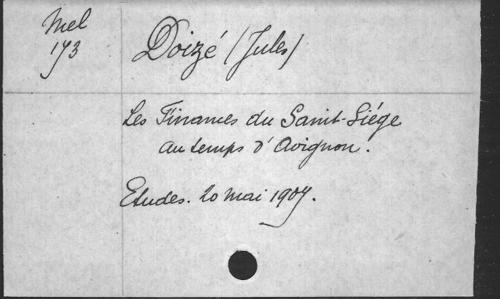 Mel
173
Doizé (Jules)
Les Finances du Saint-Siége
au temps d'Avignon.
Etudes. 20 mai 1907.